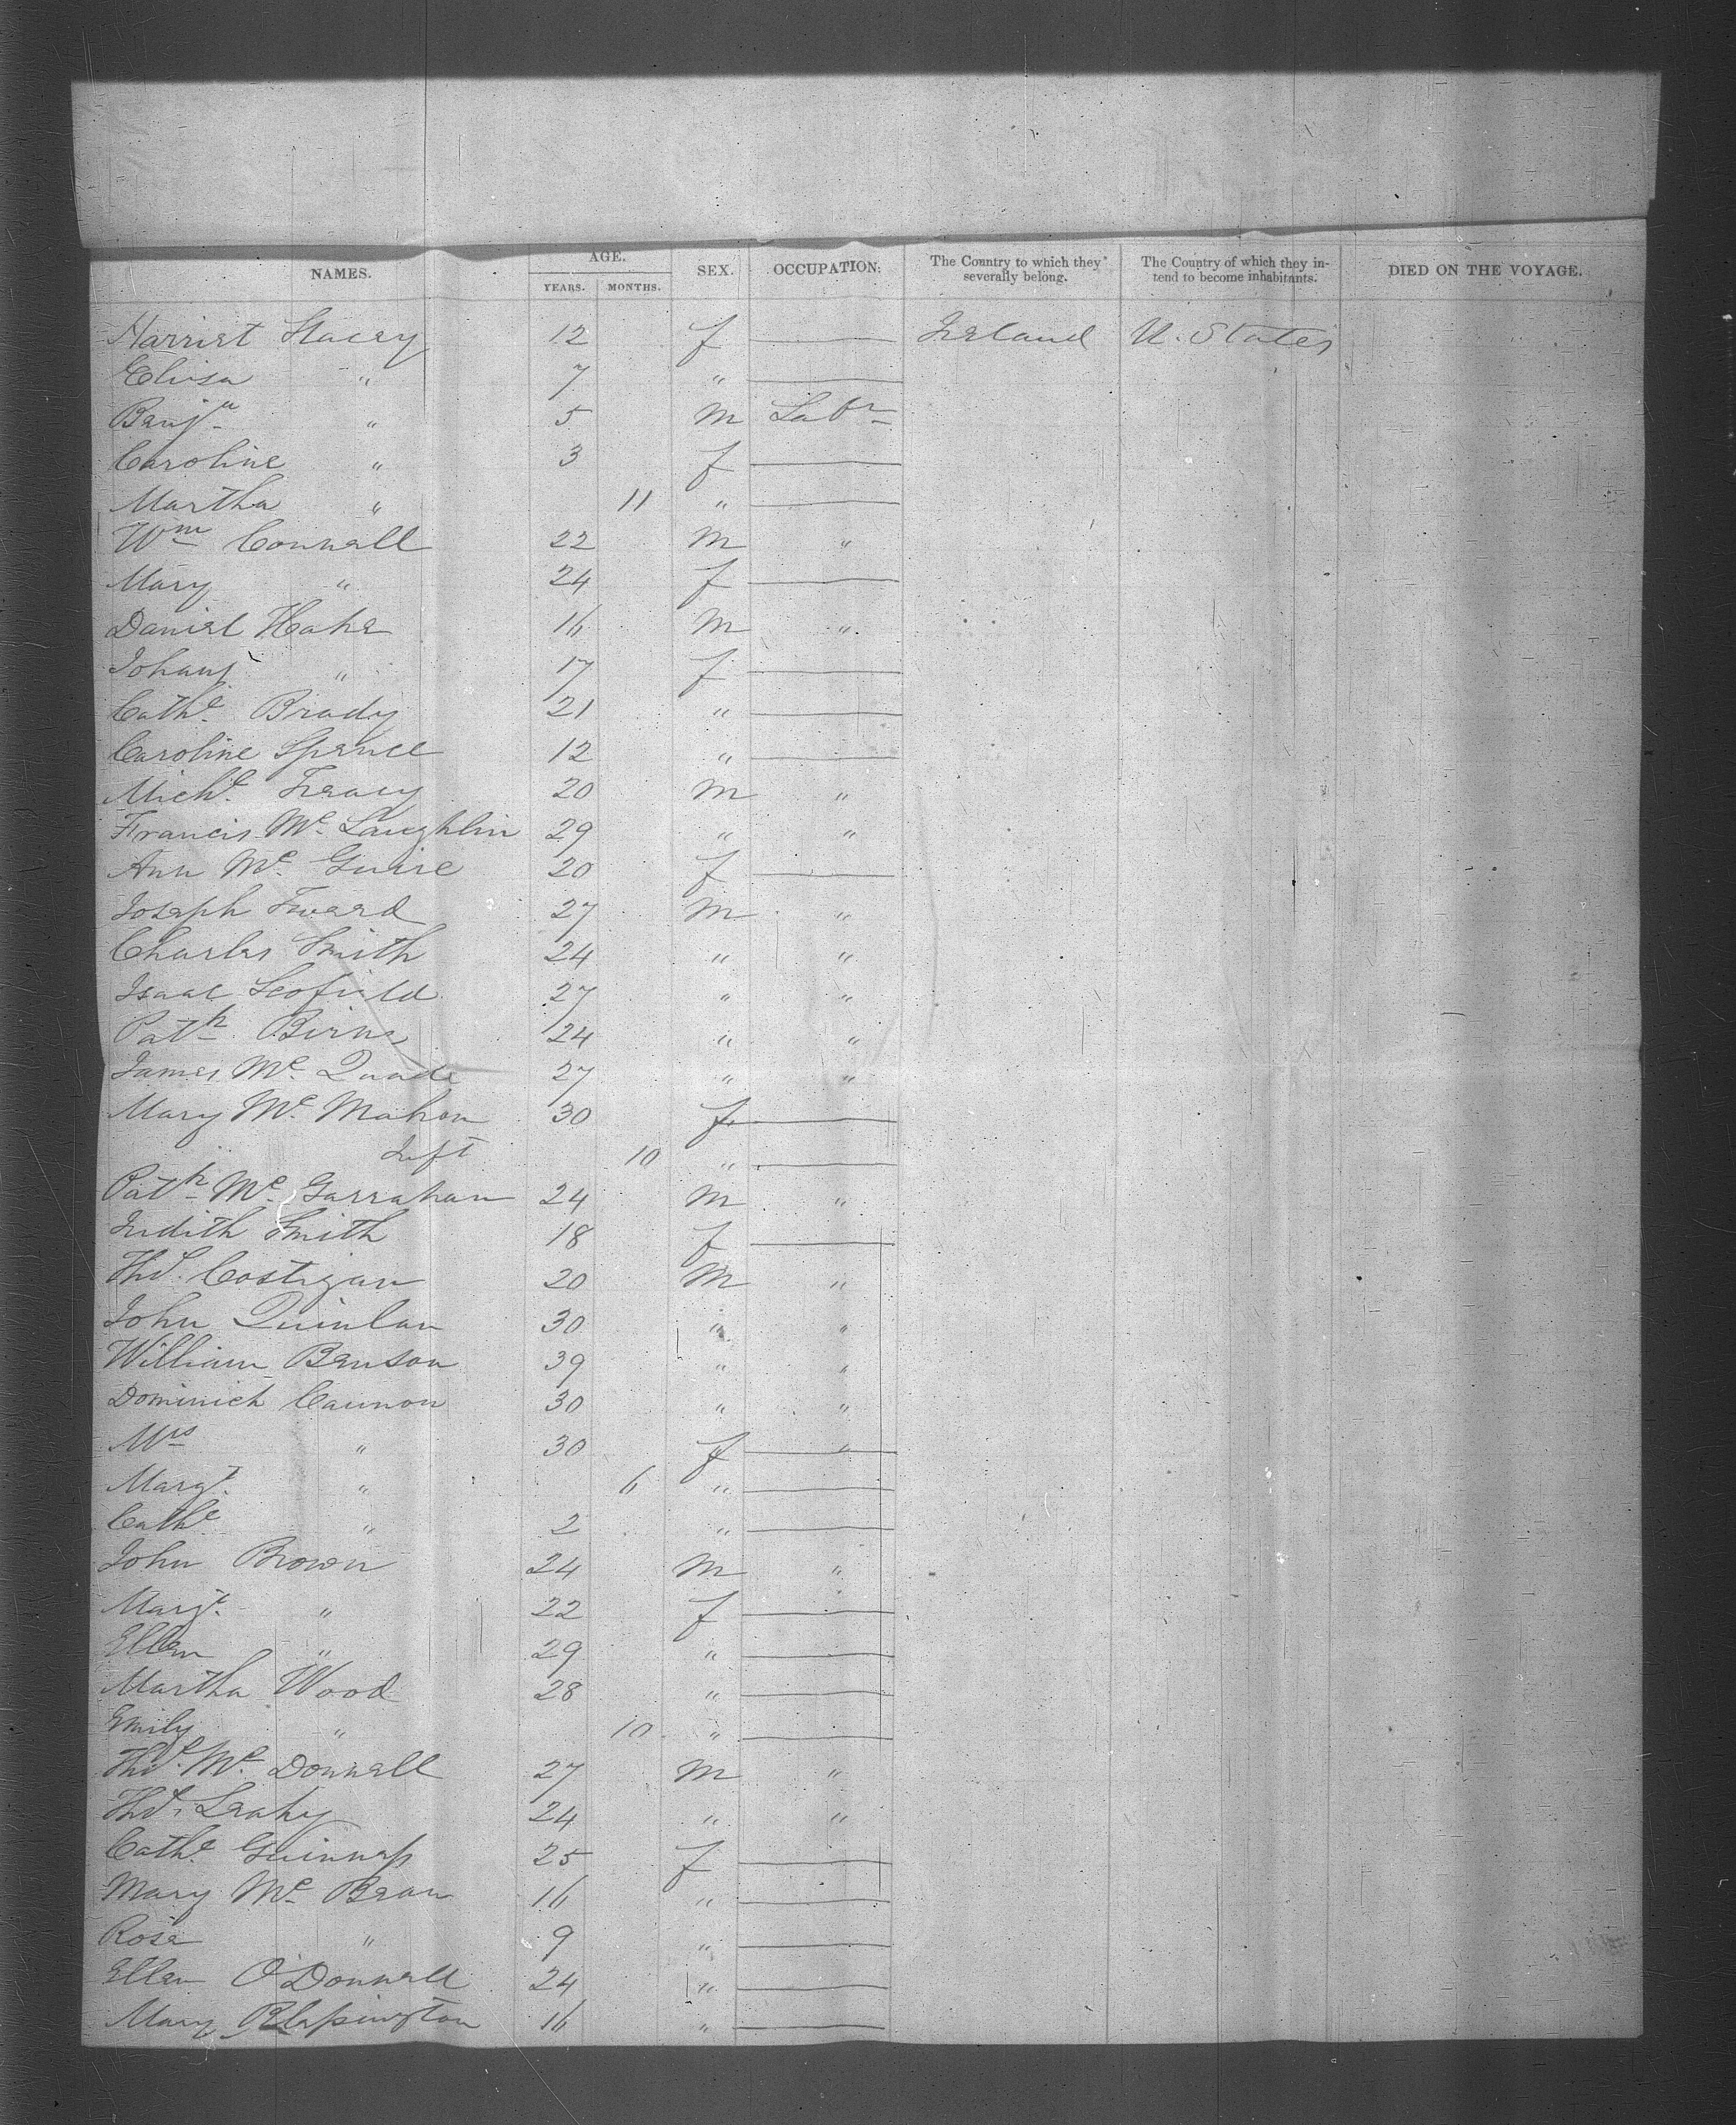 NAMES. AGE. SEX. OCCUPATION. The Country to which they severally belong. The Country of which they intend to become inhabitants. DIED ON THE VOYAGE.
YEARS. MONTHS.
Harriet Stacey 12 f — Ireland U. States
Eliza " 7 " —
Benjn " 5 M Labr
Caroline " 3 f —
Martha " 11 " —
Wm Connell 22 M "
Mary " 24 f —
Daniel 16 M "
" 17 f —
Cathe Brady 21 " —
Caroline Spence 12 " —
Michl Treacy 20 M "
Francis Mc Laughlin 29 " "
Ann Mc Guire 20 f —
Joseph 27 M "
Charles Smith 24 " "
Isaac Scofield 27 " "
Patk Birns 24 " "
James Mc Quade 27 " "
Mary Mc Mahon 30 f —
Inft 10 " —
Patk Mc Garrahan 24 M "
Judith Smith 18 f —
Thos. Costigan 20 M "
John Quinlan 30 " "
William Benson 39 " "
Dominick Cannon 30 " "
Mrs " 30 f —
Margt. " 6 " —
Cathe " 2 " —
John Brown 24 M "
Margt. " 22 f —
Ellen " 29 " —
Martha Wood 28 " —
Emily " 10 " —
Thos. Mc Donnell 27 M "
Thos. Leahy 24 " "
Cathe Guinness 25 f —
Mary Mc Bean 16 " —
Rose " 9 " —
Ellen O'Donnell 24 " —
Mary 16 " —